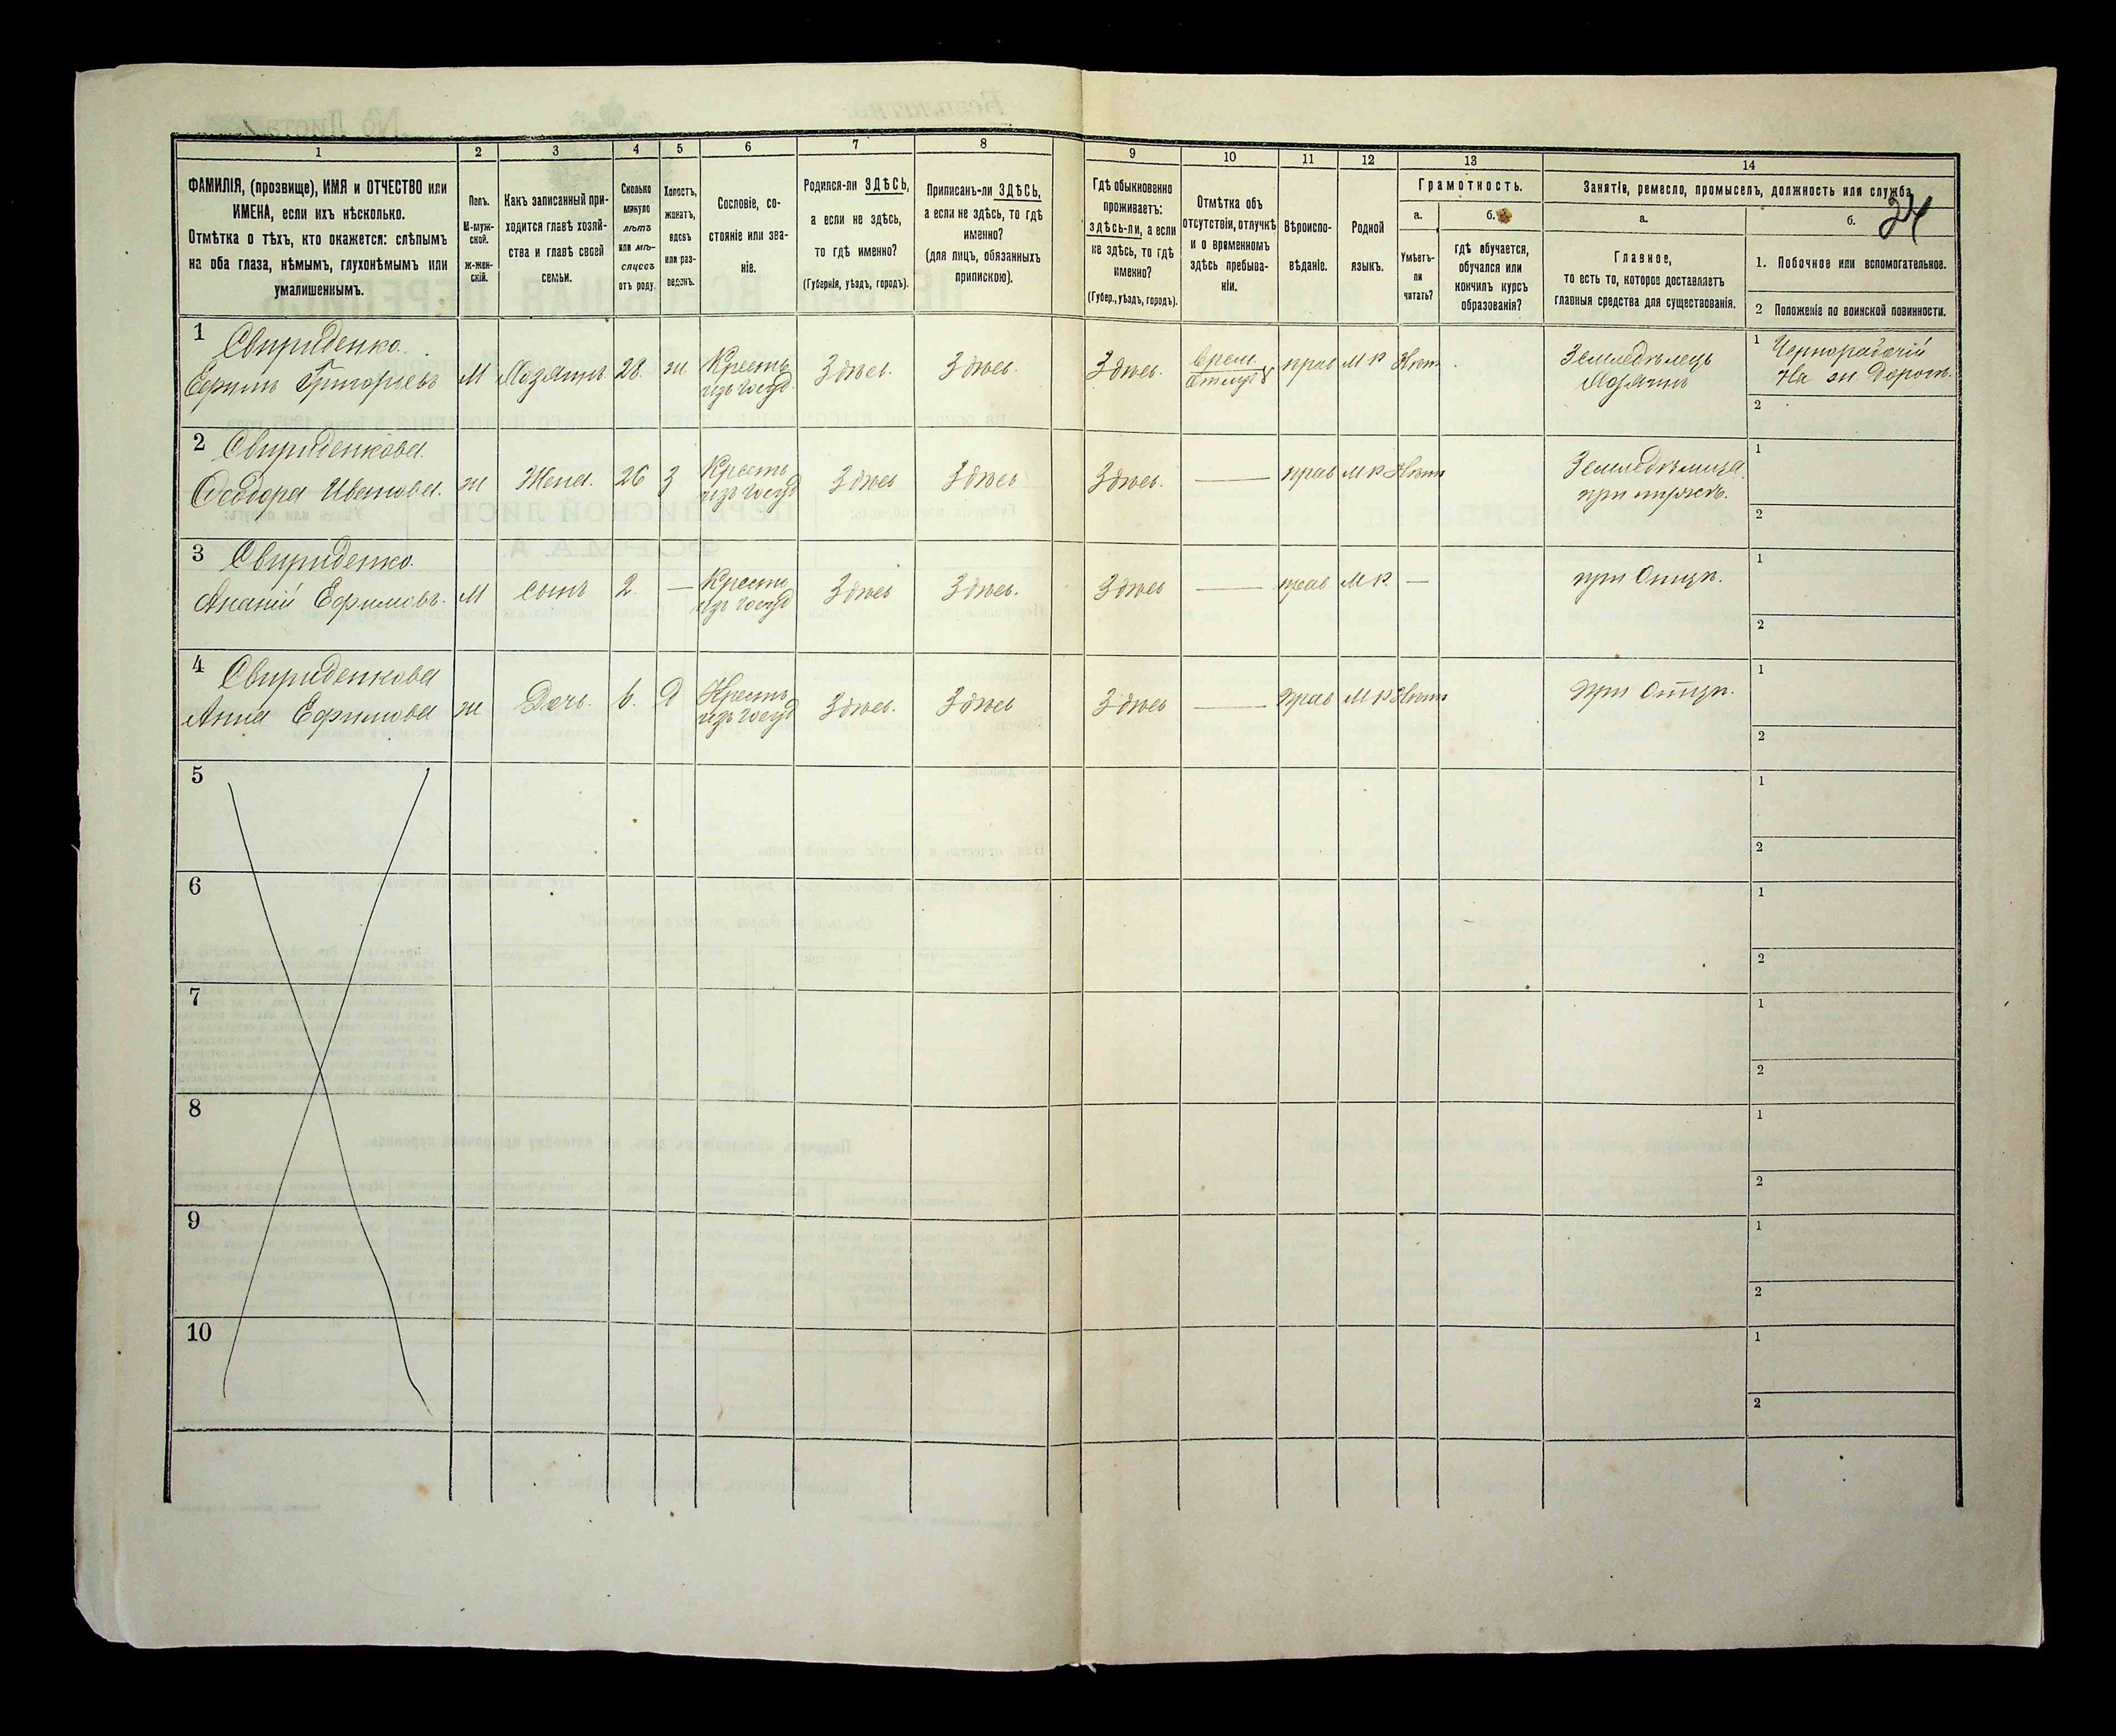 1 2 3 4 5 6 7 8 9 10 11 12 13 14
ФАМИЛІЯ, (прозвище), ИМЯ и ОТЧЕСТВО или
ИМЕНА, если ихъ нѣсколько.
Отмѣтка о тѣхъ, кто окажется: слѣпымъ
на оба глаза, нѣмымъ, глухонѣмымъ или
умалишеннымъ.
Полъ.
М-муж-
ской.
ж-жен-
скій.
Какъ записанный при-
ходится главѣ хозяй-
ства и главѣ своей
семьи.
Сколько
минуло
лѣтъ
или мѣ-
сяцевъ
отъ роду.
Холостъ,
женатъ,
вдовъ
или раз-
веденъ.
Сословіе, со-
стояніе или зва-
ніе.
Родился-ли ЗДѢСЬ,
а если не здѣсь,
то гдѣ именно?
(Губернія, уѣздъ, городъ).
Приписанъ-ли ЗДѢСЬ,
а если не здѣсь, то гдѣ
именно?
(для лицъ, обязанныхъ
припискою).
Гдѣ обыкновенно
проживаетъ:
здѣсь-ли, а если
не здѣсь, то гдѣ
именно?
(Губер., уѣздъ, городъ).
Отмѣтка объ
отсутствіи, отлучкѣ
и о временномъ
здѣсь пребыва-
ніи.
Вѣроиспо-
вѣданіе.
Родной
языкъ.
Грамотность.
а.
Умѣетъ-
ли
читать?
б.
гдѣ обучается,
обучался или
кончилъ курсъ
образованія?
Занятіе, ремесло, промыселъ, должность или служба.
а.
Главное,
то есть то, которое доставляетъ
главныя средства для существованія.
б.
24
1. Побочное или вспомогательное.
2 Положеніе по воинской повинности.
1 Свириденко.
Ефимъ Григорьевъ М Хозяинъ 28. ж. Крестъ изъ госуд Здѣсь. Здѣсь. Здѣсь. Врем. отлуч прав М Р Нѣтъ Земледѣлецъ Хозяинъ 1 Чернорабочій на ж Дорогѣ.
2
2 Свириденкова
Ѳеодора Иванова. ж Жена. 26 З Крестъ изъ госуд Здѣсь Здѣсь Здѣсь. — прав М Р Нѣтъ Земледѣлица при мужѣ. 1
2
3 Свириденко.
Ананій Ефимовъ. М сынъ 2. — Крестъ изъ госуд Здѣсь Здѣсь. Здѣсь — прав М Р. — при Отцѣ. 1
2
4 Свириденкова
Анна Ефимова ж Дочь. 6. Д Крестъ изъ госуд Здѣсь. Здѣсь Здѣсь — прав М Р Нѣтъ при Отцѣ. 1
2
5 1
2
6 1
2
7 1
2
8 1
2
9 1
2
10 1
2